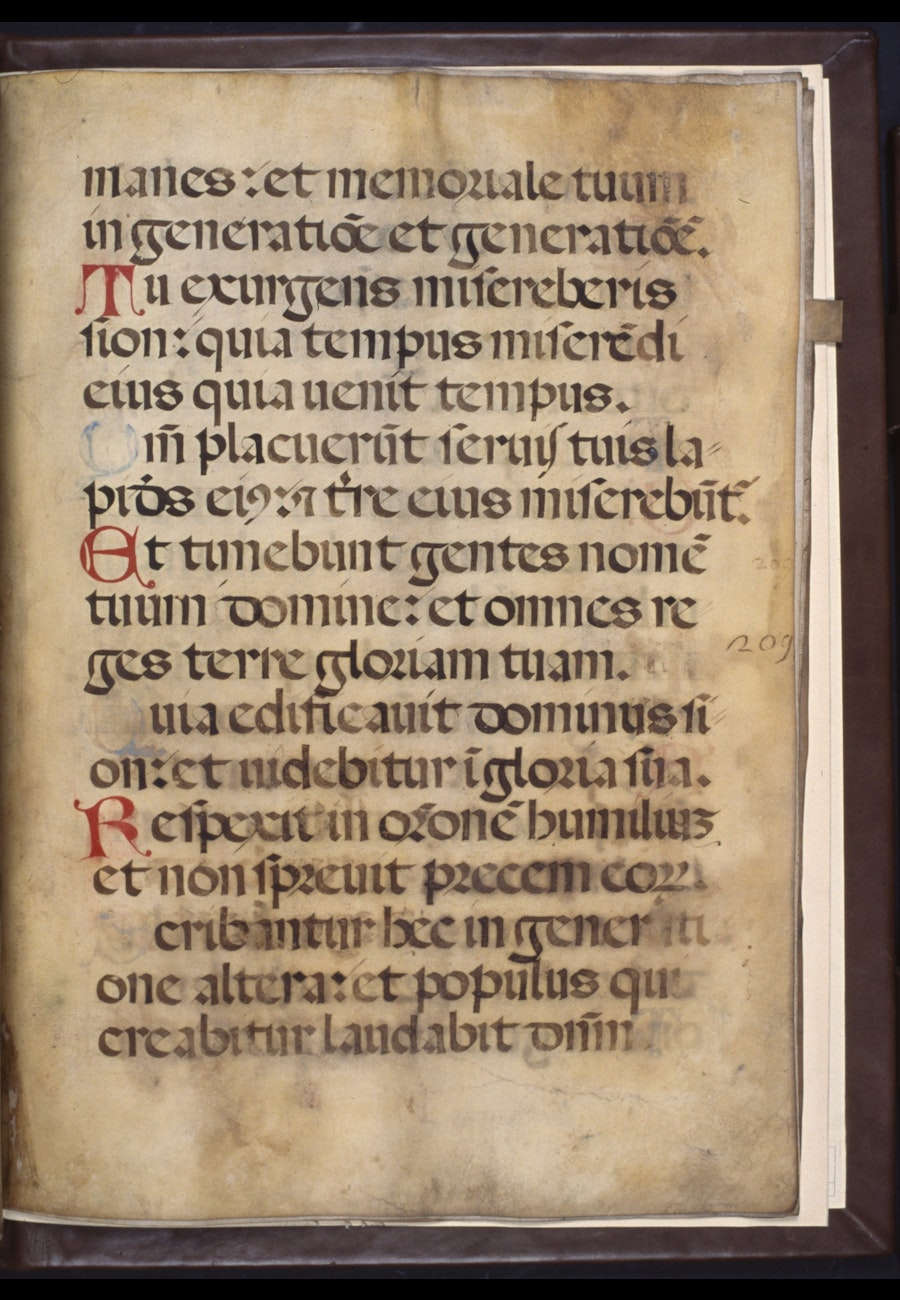 manes : et memoriale tuum
in generatiōe et generatiōē.
Tu exurgens misereberis
sion : quia tempus miserēdi
eius quia uenit tempus.
m̄ placuerūt seruis tuis la-
pid̄s eiꝯ : ⁊ t̄re eius miserebūt̄.
Et timebunt gentes nomē
tuum domine : et omnes re
ges terre gloriam tuam.
uia edificauit dominus si
on : et uidebitur ī gloria sua.
Respexit in or̄onē humiliuꝫ
et non spreuit precem eoꝝ.
cribantur hec in generati
one altera : et populus qui
creabitur laudabit dn̄m
209